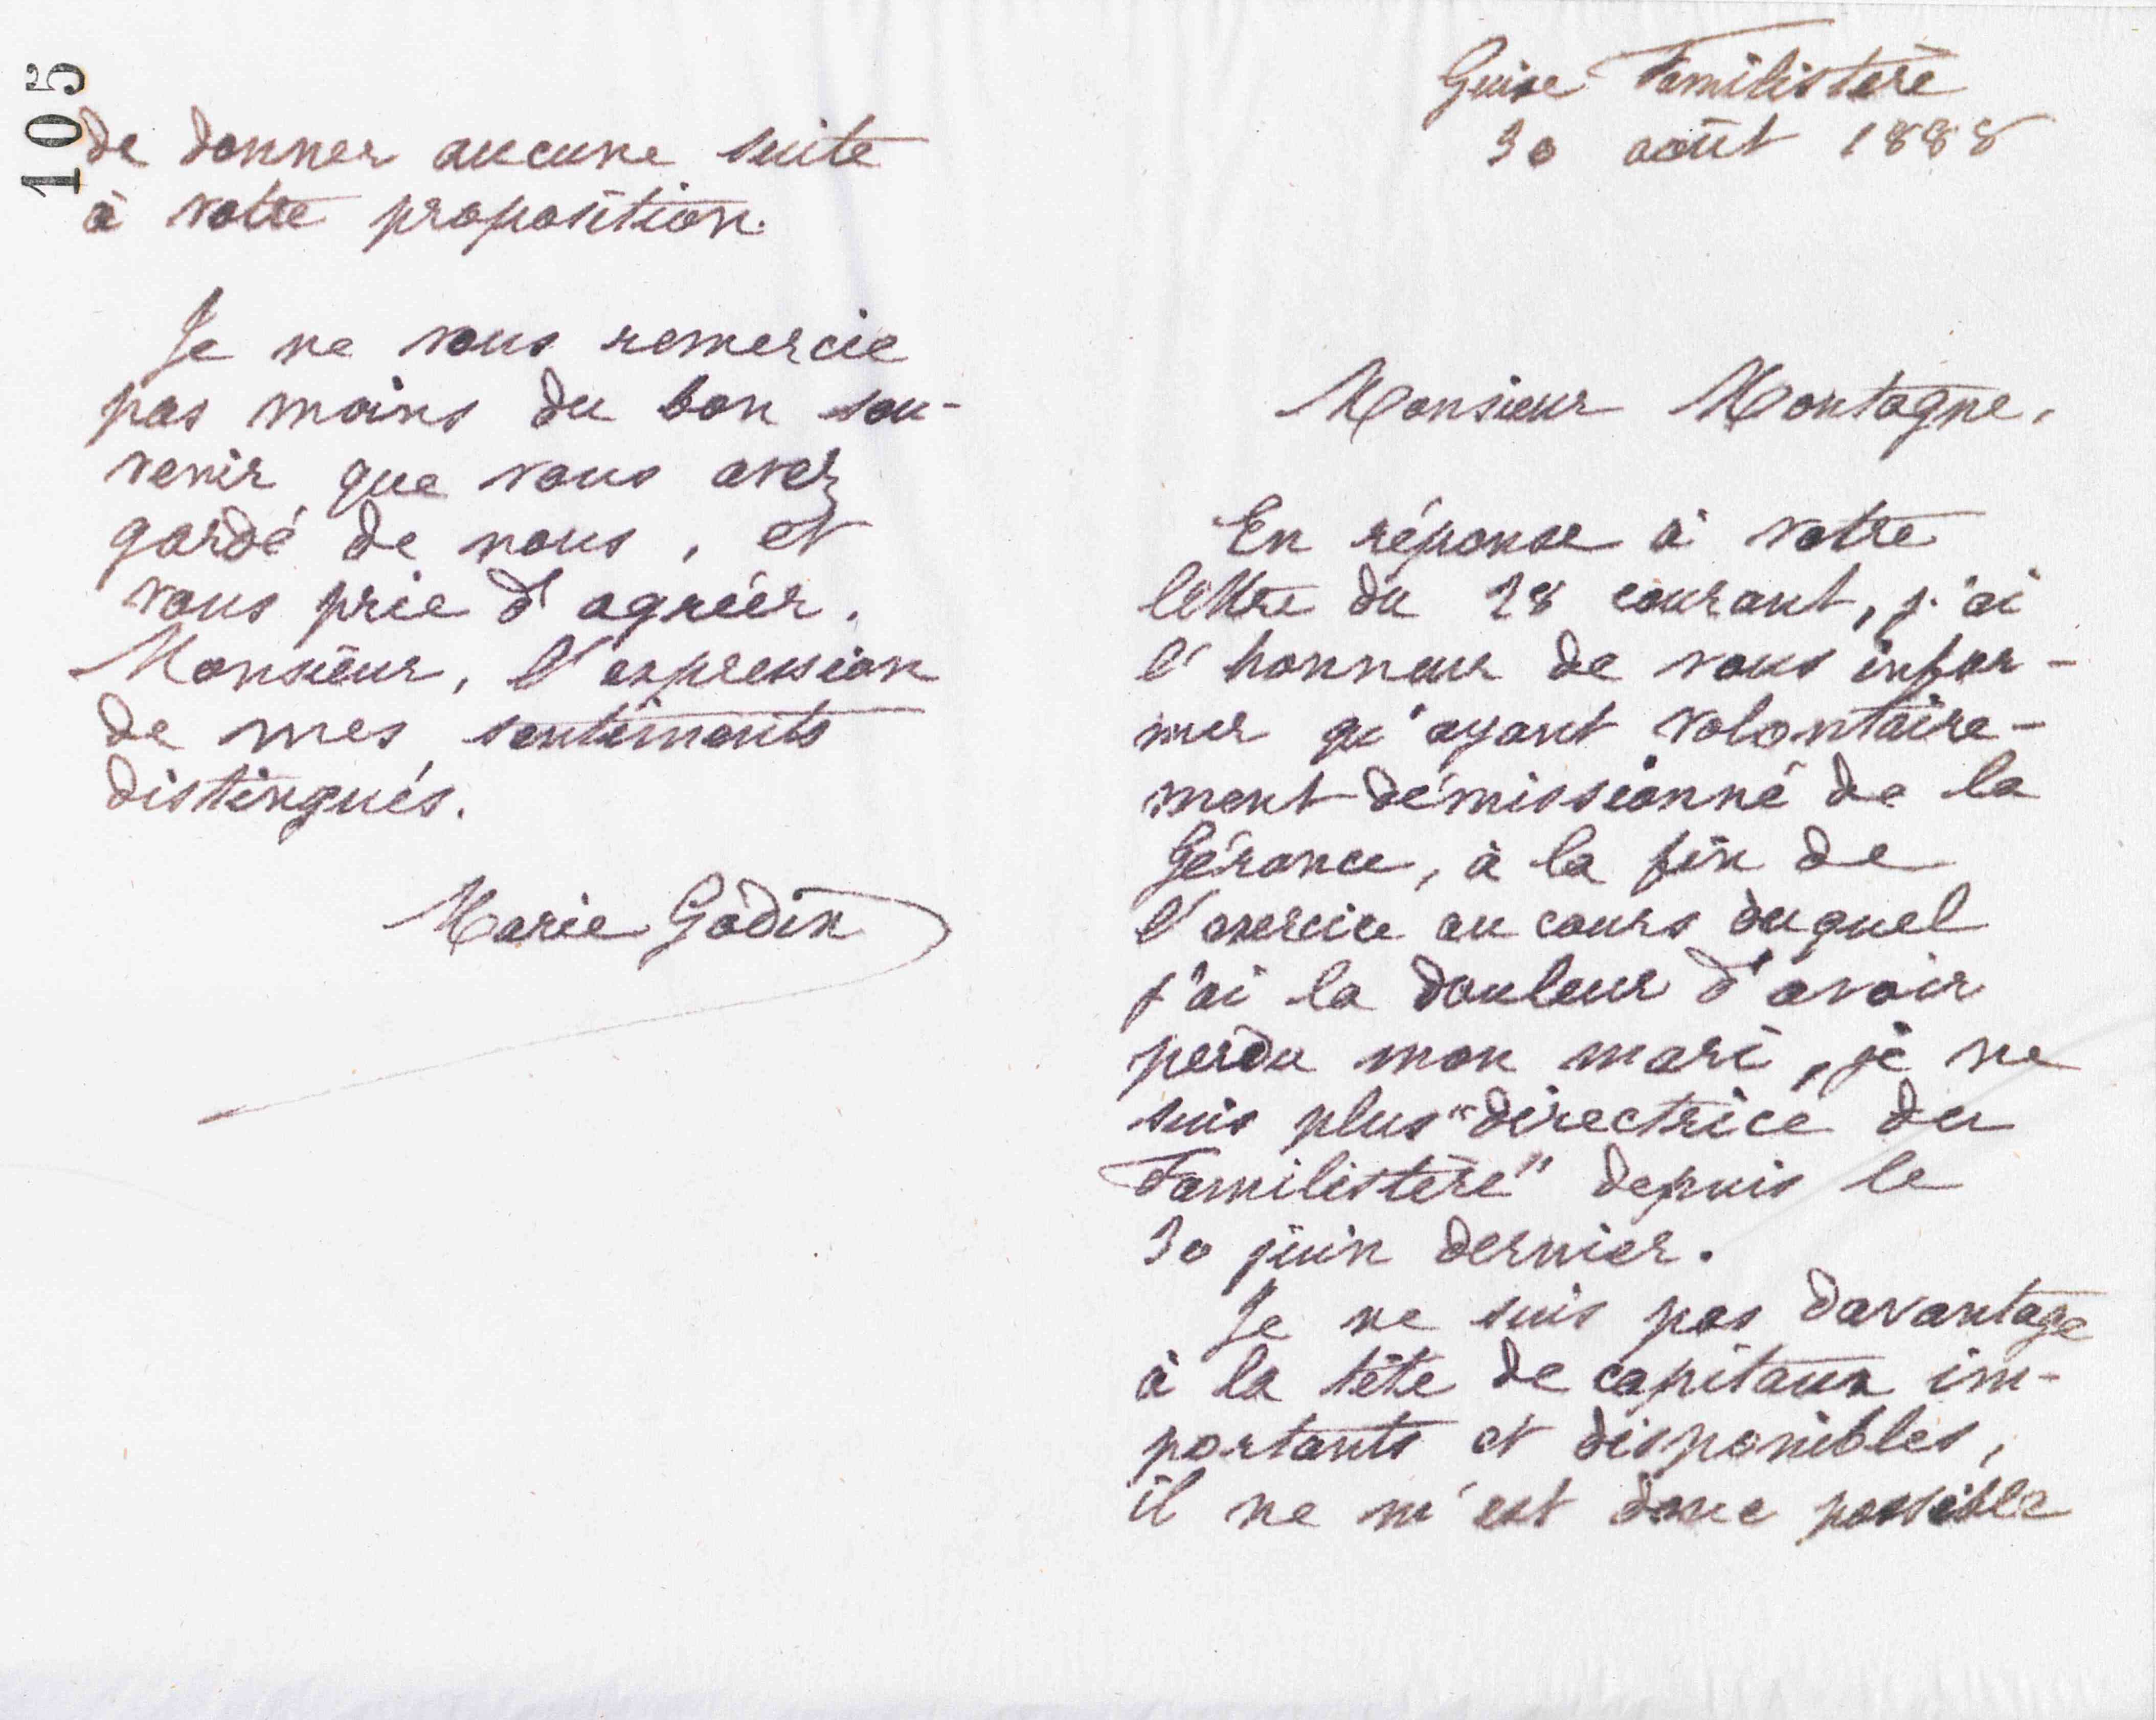 Guise Familistère
30 août 1888
Monsieur Montagne,
En réponse à votre
lettre du 28 courant, j'ai
l'honneur de vous infor-
mer qu'ayant volontaire-
ment démissionné de la
Gérance, à la fin de
l'exercice au cours duquel
j'ai la douleur d'avoir
perdu mon mari, je ne
suis plus "directrice du
Familistère" depuis le
30 juin dernier.
Je ne suis pas davantage
à la tête de capitaux im-
portants et disponibles,
il ne m'est donc possible
105
de donner aucune suite
à votre proposition.
Je ne vous remercie
pas moins du bon sou-
venir que vous avez
gardé de nous, et
vous prie d'agréer,
Monsieur, l'expression
de mes sentiments
distingués.
Marie Godin